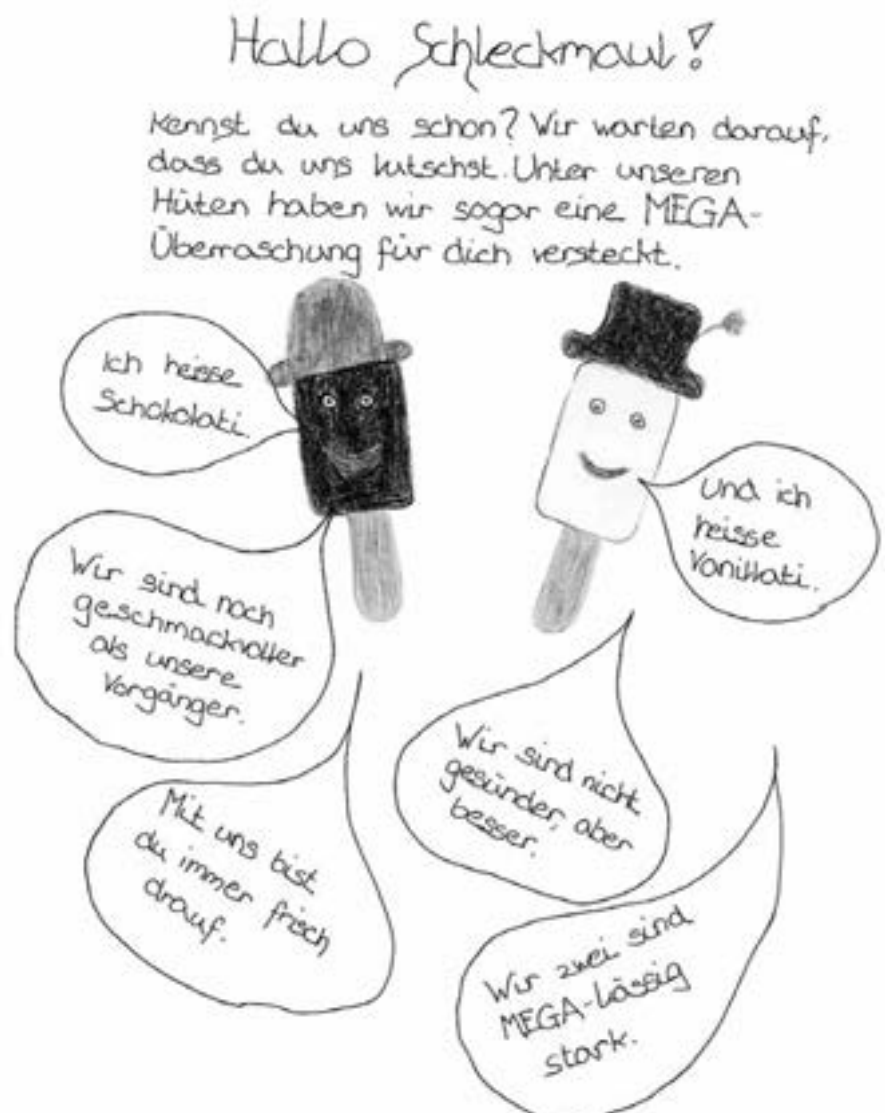 Hallo Schleckmaul!
Kennst du uns schon? Wir warten darauf,
dass du uns lutschst. Unter unseren
Hüten haben wir sogar eine MEGA-
Überraschung für dich versteckt.
Ich heisse
Schokolati.
Und ich
heisse
Vanillati.
Wir sind noch
geschmackvoller
als unsere
Vorgänger.
Wir sind nicht
gesünder, aber
besser.
Mit uns bist
du immer frisch
drauf.
Wir zwei sind
MEGA-lässig
stark.